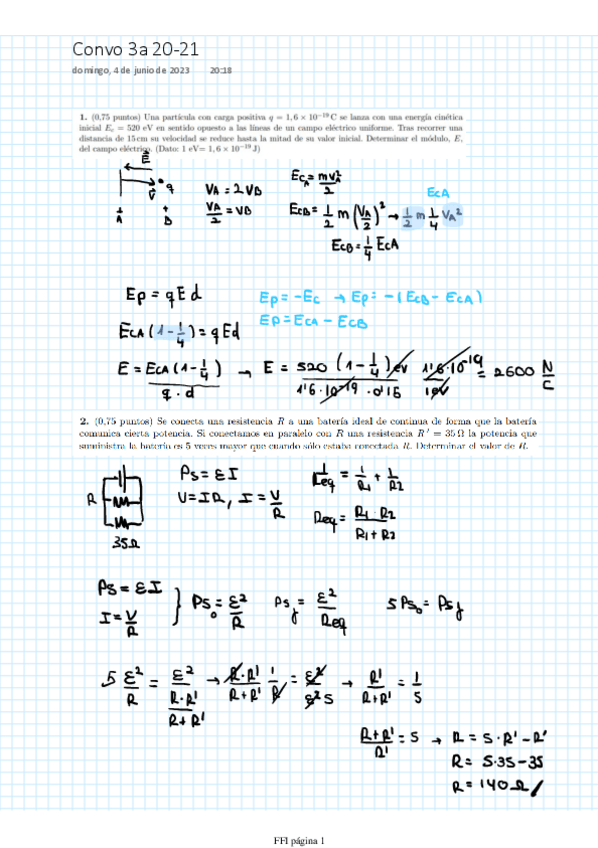 Convo 3a 20-21
domingo, 4 de junio de 2023 20:18
1. (0,75 puntos) Una partícula con carga positiva q = 1,6 × 10⁻¹⁹ C se lanza con una energía cinética
inicial E_c = 520 eV en sentido opuesto a las líneas de un campo eléctrico uniforme. Tras recorrer una
distancia de 15 cm su velocidad se reduce hasta la mitad de su valor inicial. Determinar el módulo, E,
del campo eléctrico. (Dato: 1 eV= 1,6 × 10⁻¹⁹ J)
E
q
V
A B
VA = 2VB
VA/2 = VB
EcA = mvA²/2
EcA
EcB = 1/2 m (VA/2)² → 1/2 m 1/4 VA²
EcB = 1/4 EcA
Ep = qEd
Ep = -Ec → Ep = -(EcB - EcA)
Ep = EcA - EcB
EcA (1 - 1/4) = qEd
E = EcA (1 - 1/4) / q·d → E = 520 (1 - 1/4) eV / 1'6·10⁻¹⁹ · 0'15 1'6·10⁻¹⁹ / 1eV = 2600 N/C
2. (0,75 puntos) Se conecta una resistencia R a una batería ideal de continua de forma que la batería
comunica cierta potencia. Si conectamos en paralelo con R una resistencia R′ = 35 Ω la potencia que
suministra la batería es 5 veces mayor que cuando sólo estaba conectada R. Determinar el valor de R.
R
35Ω
Ps = εI
V = IR, I = V/R
1/Req = 1/R1 + 1/R2
Req = R1·R2 / R1+R2
Ps = εI
I = V/R
Ps₀ = ε²/R
Psf = ε²/Req
5Ps₀ = Psf
5 ε²/R = ε² / (R·R'/R+R') → R·R'/R+R' 1/R = ε²/ε²5 → R'/R+R' = 1/5
R+R'/R' = 5 → R = 5·R' - R'
R = 5·35-35
R = 140Ω/
FFI página 1